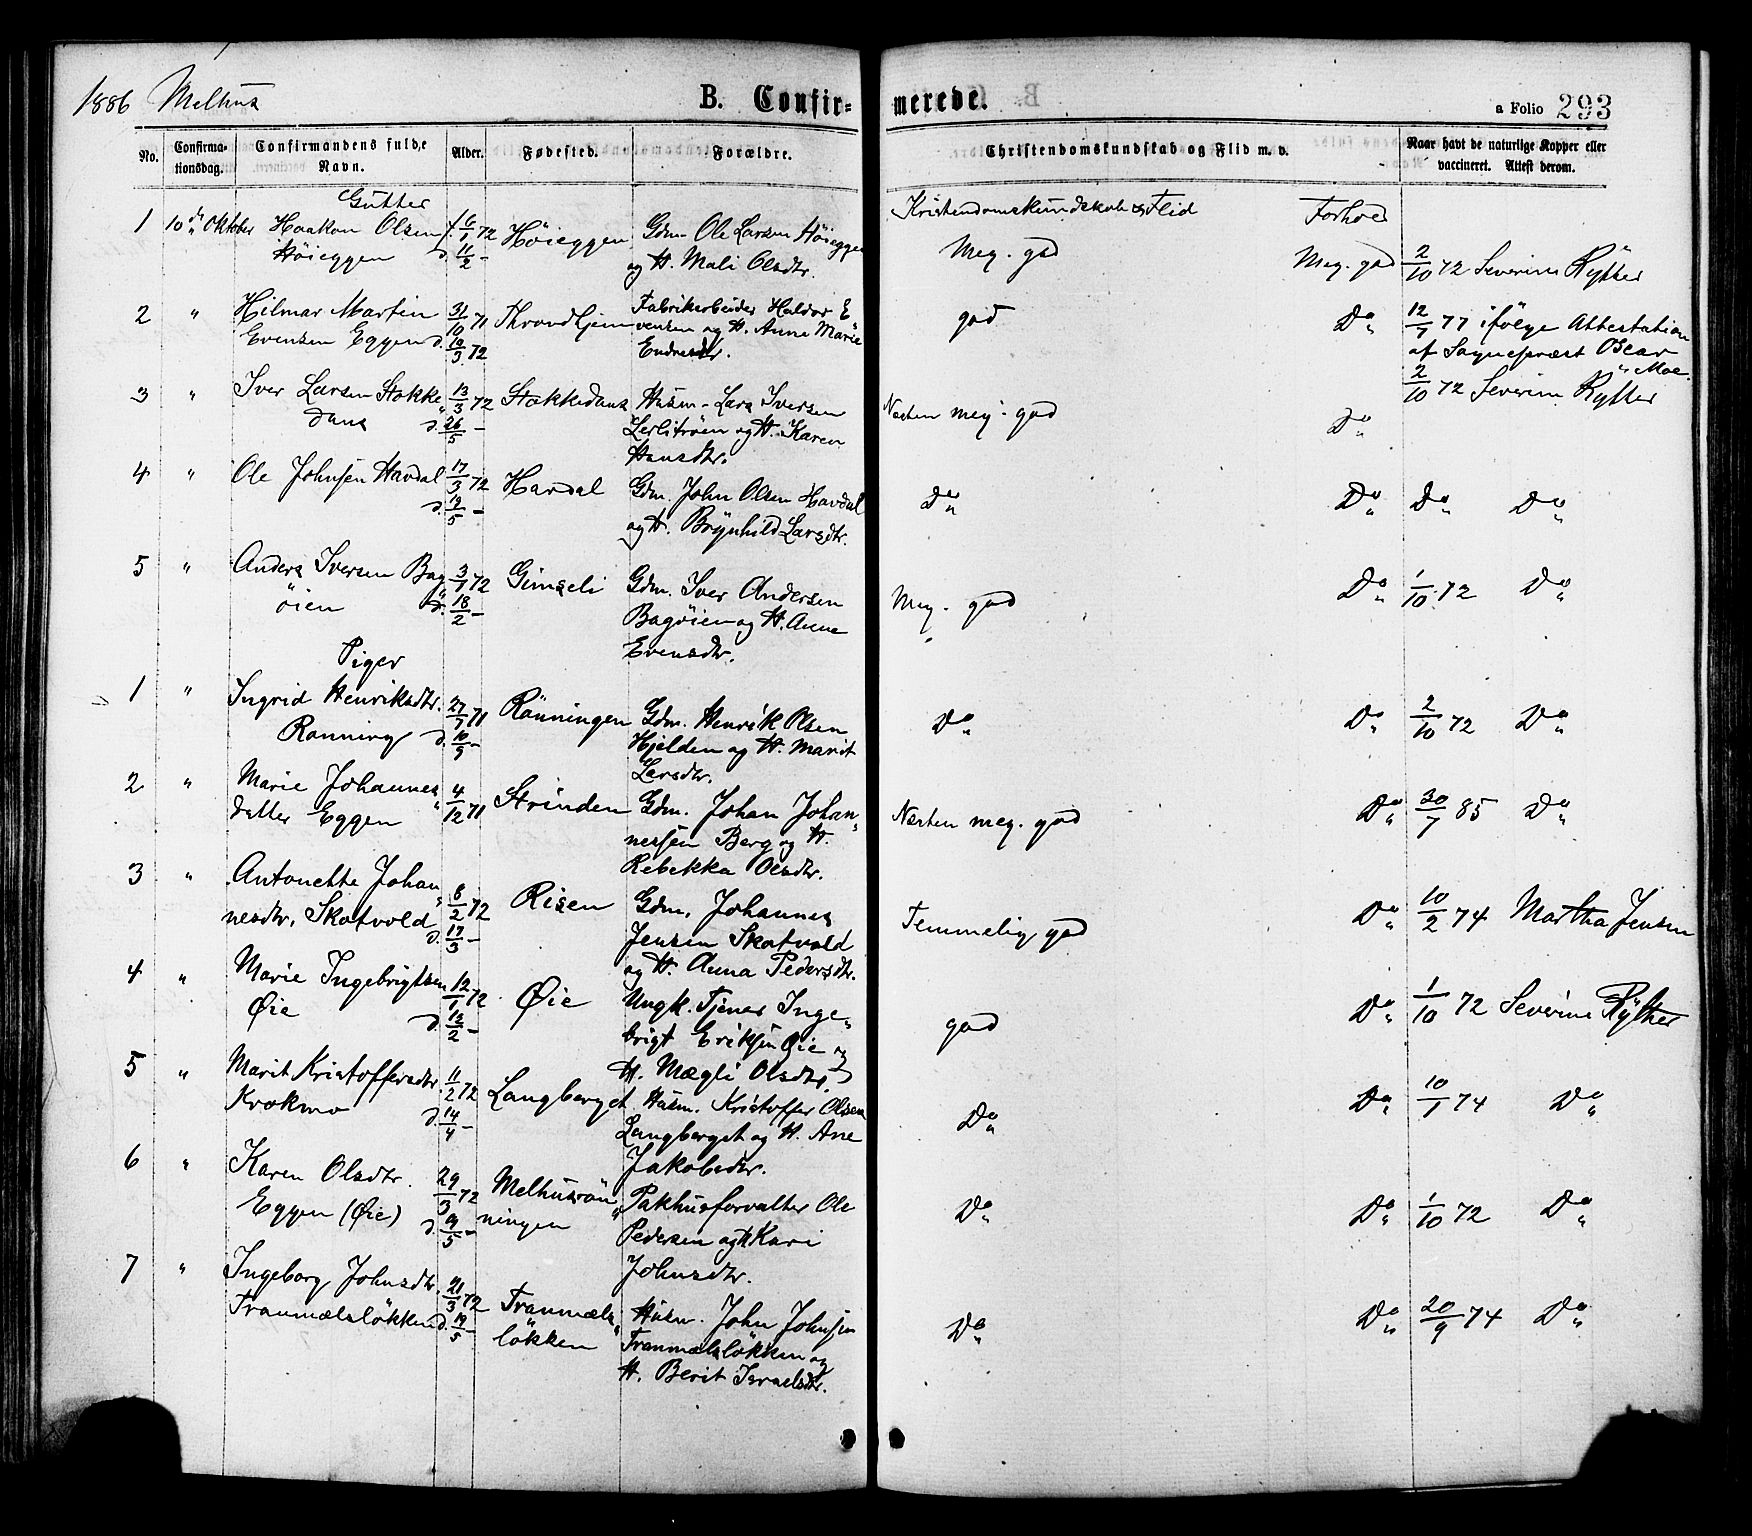 1886 Melhus
B. Confirmerede.
a Folio 293
No. Confirmationsdag. Confirmandens fulde Navn. Alder. Fødested. Forældre. Christendomskundskab og Flid m. v. Naar havt de naturlige Kopper eller vaccineret. Attest derom.
Gutter
Kristendomskundskab & Flid Forhold
1 10de Oktober Haakon Olsen f. 6/1 72 Høieggen Gdm. Ole Larsen Høieggen
Høieggen d. 11/2 - og H. Mali Olsdtr. Meg. god Meg. god 2/10 72 Severine Rytter
2 " Hilmar Martin 31/10 71 Throndhjem Fabrikarbeider Haldor E
Evensen Eggen d. 10/3 72 vensen og H. Anne Marie
Endresdtr. god Do 12/7 77 ifølge Attestation
af Sognepræst Oscar Moe.
3 " Iver Larsen Stokke 13/3 72 Stokkedans Husm. Lars Iversen
dans d. 26/5 - og H. Karen
Hansdtr. Næsten meg. god Do 2/10 72 Severine Rytter
4 " Ole Johnsen Havdal 17/3 72 Havdal Gdm. John Olsen Havdal
d. 19/5 - og H. Brynhild Larsdtr. Do Do Do Do
5 " Anders Iversen Bag 3/1 72 Gimseli Gdm. Iver Andersen
øien d. 18/2 - Bagøien og H. Anne
Evensdtr. Meg. god Do 1/10 72 Do
Piger
1 " Ingrid Henriksdtr. 27/7 71 Rønningen Gdm. Henrik Olsen
Rønning d. 10/9 - Hjelden og H. Marit
Larsdtr. Do Do 2/10 72 Do
2 " Marie Johannes 4/12 71 Strinden Gdm. Johan Johan
datter Eggen nessen Berg og H.
Rebekka Olsdtr. Næsten meg. god Do 30/7 85 Do
3 " Antonette Johan 8/2 72 Risen Gdm. Johannes
nesdtr. Skotvold d. 17/3 - Jensen Skotvold
og H. Anna Pedersdtr. Temmelig god Do 10/2 74 Martha Jensen
4 " Marie Ingebrigtsen 12/1 72 Øie Ungk. Tjener Inge
Øie d. 18/2 - brigt Eriksen Øie og
H. Mægli Olsdtr. god Do 1/10 72 Severine Rytter
5 " Marit Kristoffersdtr. 11/2 72 Langberget Husm. Kristoffer Olsen
Krokmo d. 14/4 - Langberget og H. Ane
Jakobsdtr. Do Do 10/1 74 Do
6 " Karen Olsdtr. 29/3 72 Melhusrøn Pakhusforvalter Ole
Eggen (Øie) d. 9/5 - ningen Pedersen og H. Kari
Johnsdtr. Do Do 1/10 72 Do
7 " Ingeborg Johnsdtr. 21/3 72 Tranmæls Husm. John Johnsen
Tranmælsløkken d. 19/5 - løkken Tranmælsløkken og
H. Berit Israelsdtr. Do Do 20/9 74 Do